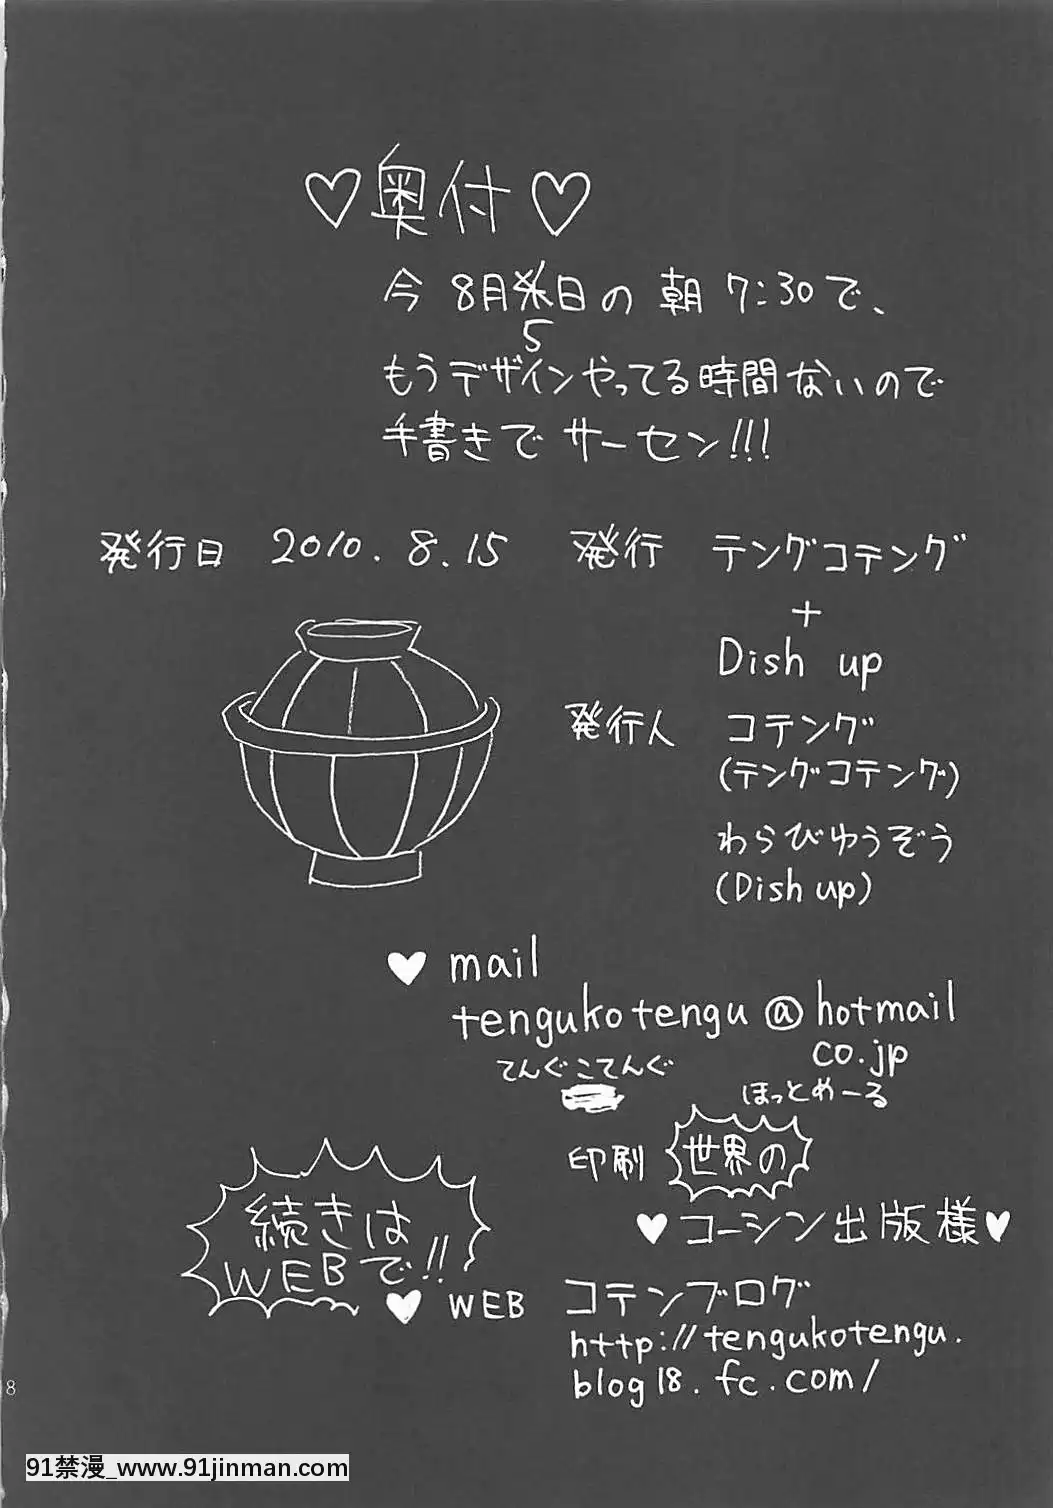 ♡奥付♡
今 8月5日の 朝 7:30で、
もうデザインやってる時間ないので
手書きで サーセン!!!
発行日 2010.8.15 発行 テングコテング
+
Dish up
発行人 コテング
(テングコテング)
わらびゆうぞう
(Dish up)
♥ mail
tengukotengu@hotmail
co.jp
てんぐこてんぐ
ほっとめーる
印刷 世界の
♥コーシン出版様♥
続きは
WEBで!!
♥ WEB コテンブログ
http://tengukotengu.
blog18.fc.com/
8
91禁漫_www.91jinman.com